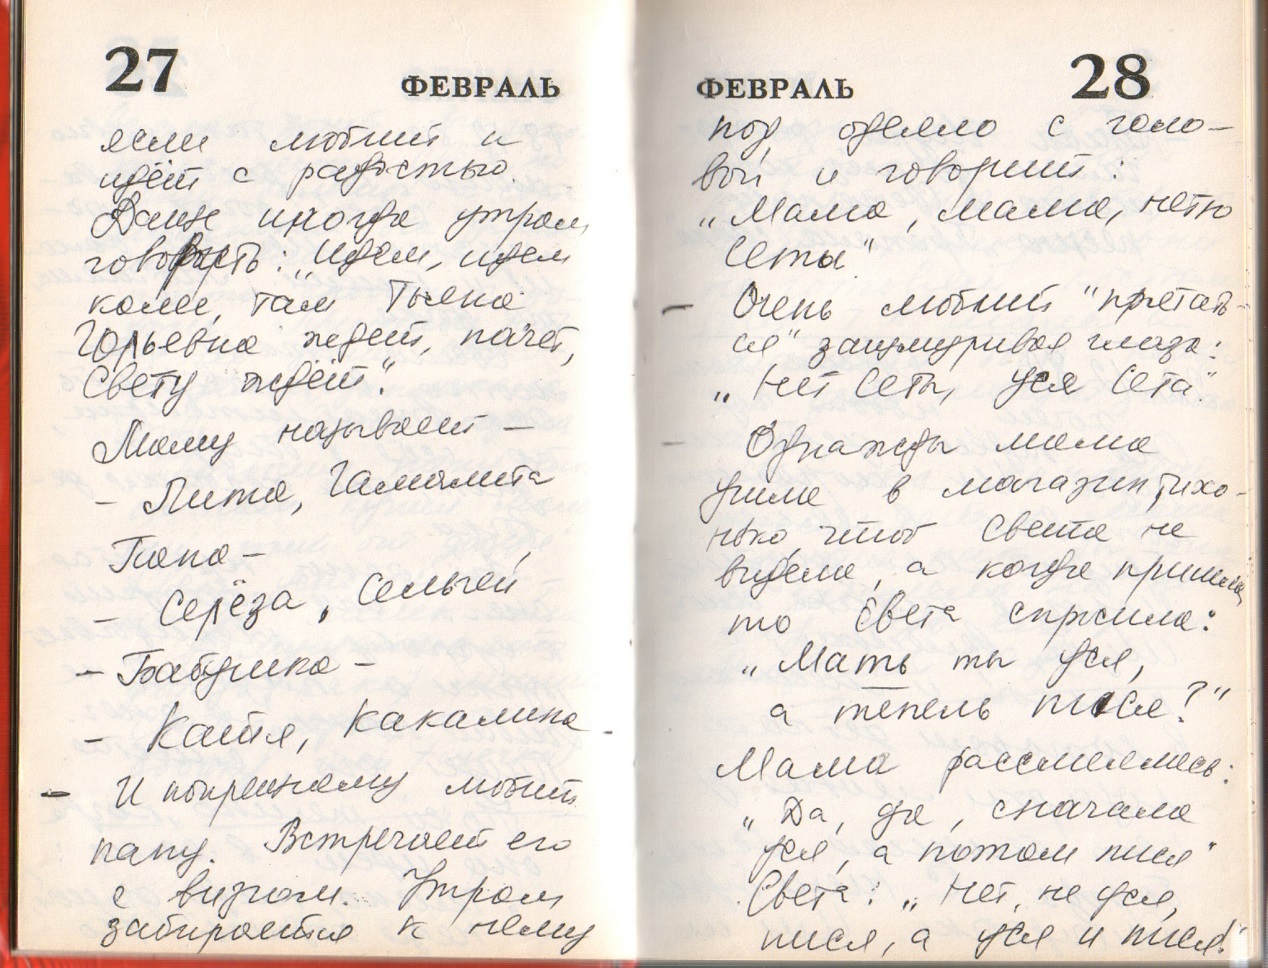 27
ФЕВРАЛЬ
ясли любит и
идёт с радостью.
Даже иногда утром
говорить: „Идём, идём
колее, там Тьяна
Горьевна ждёт, пачет,
Свету ждёт".
Маму называет –
– Лита, Гамалита
Папа –
– Серёза, Сельгей
– Бабушка –
– Катя, Какалина
– И попрежнему любит
папу. Встречает его
с визгом. Утром
забирается к нему
ФЕВРАЛЬ
28
под одеяло с голо–
вой и говорит:
„Мама, мама, нетю
Сеты".
– Очень любит "прятать-
ся" зашмуривая глаза:
„Нет Сеты, уся Сета".
– Однажды мама
ушла в магазин, тихо-
нько чтоб Света не
видела, а когда пришла,
то Света спросила:
„Мать ты уся,
а тепель пися?"
Мама рассмеялась:
„Да, да, сначала
уся, а потом пися"
Света: „Нет, не уся,
пися, а уся и пися!"